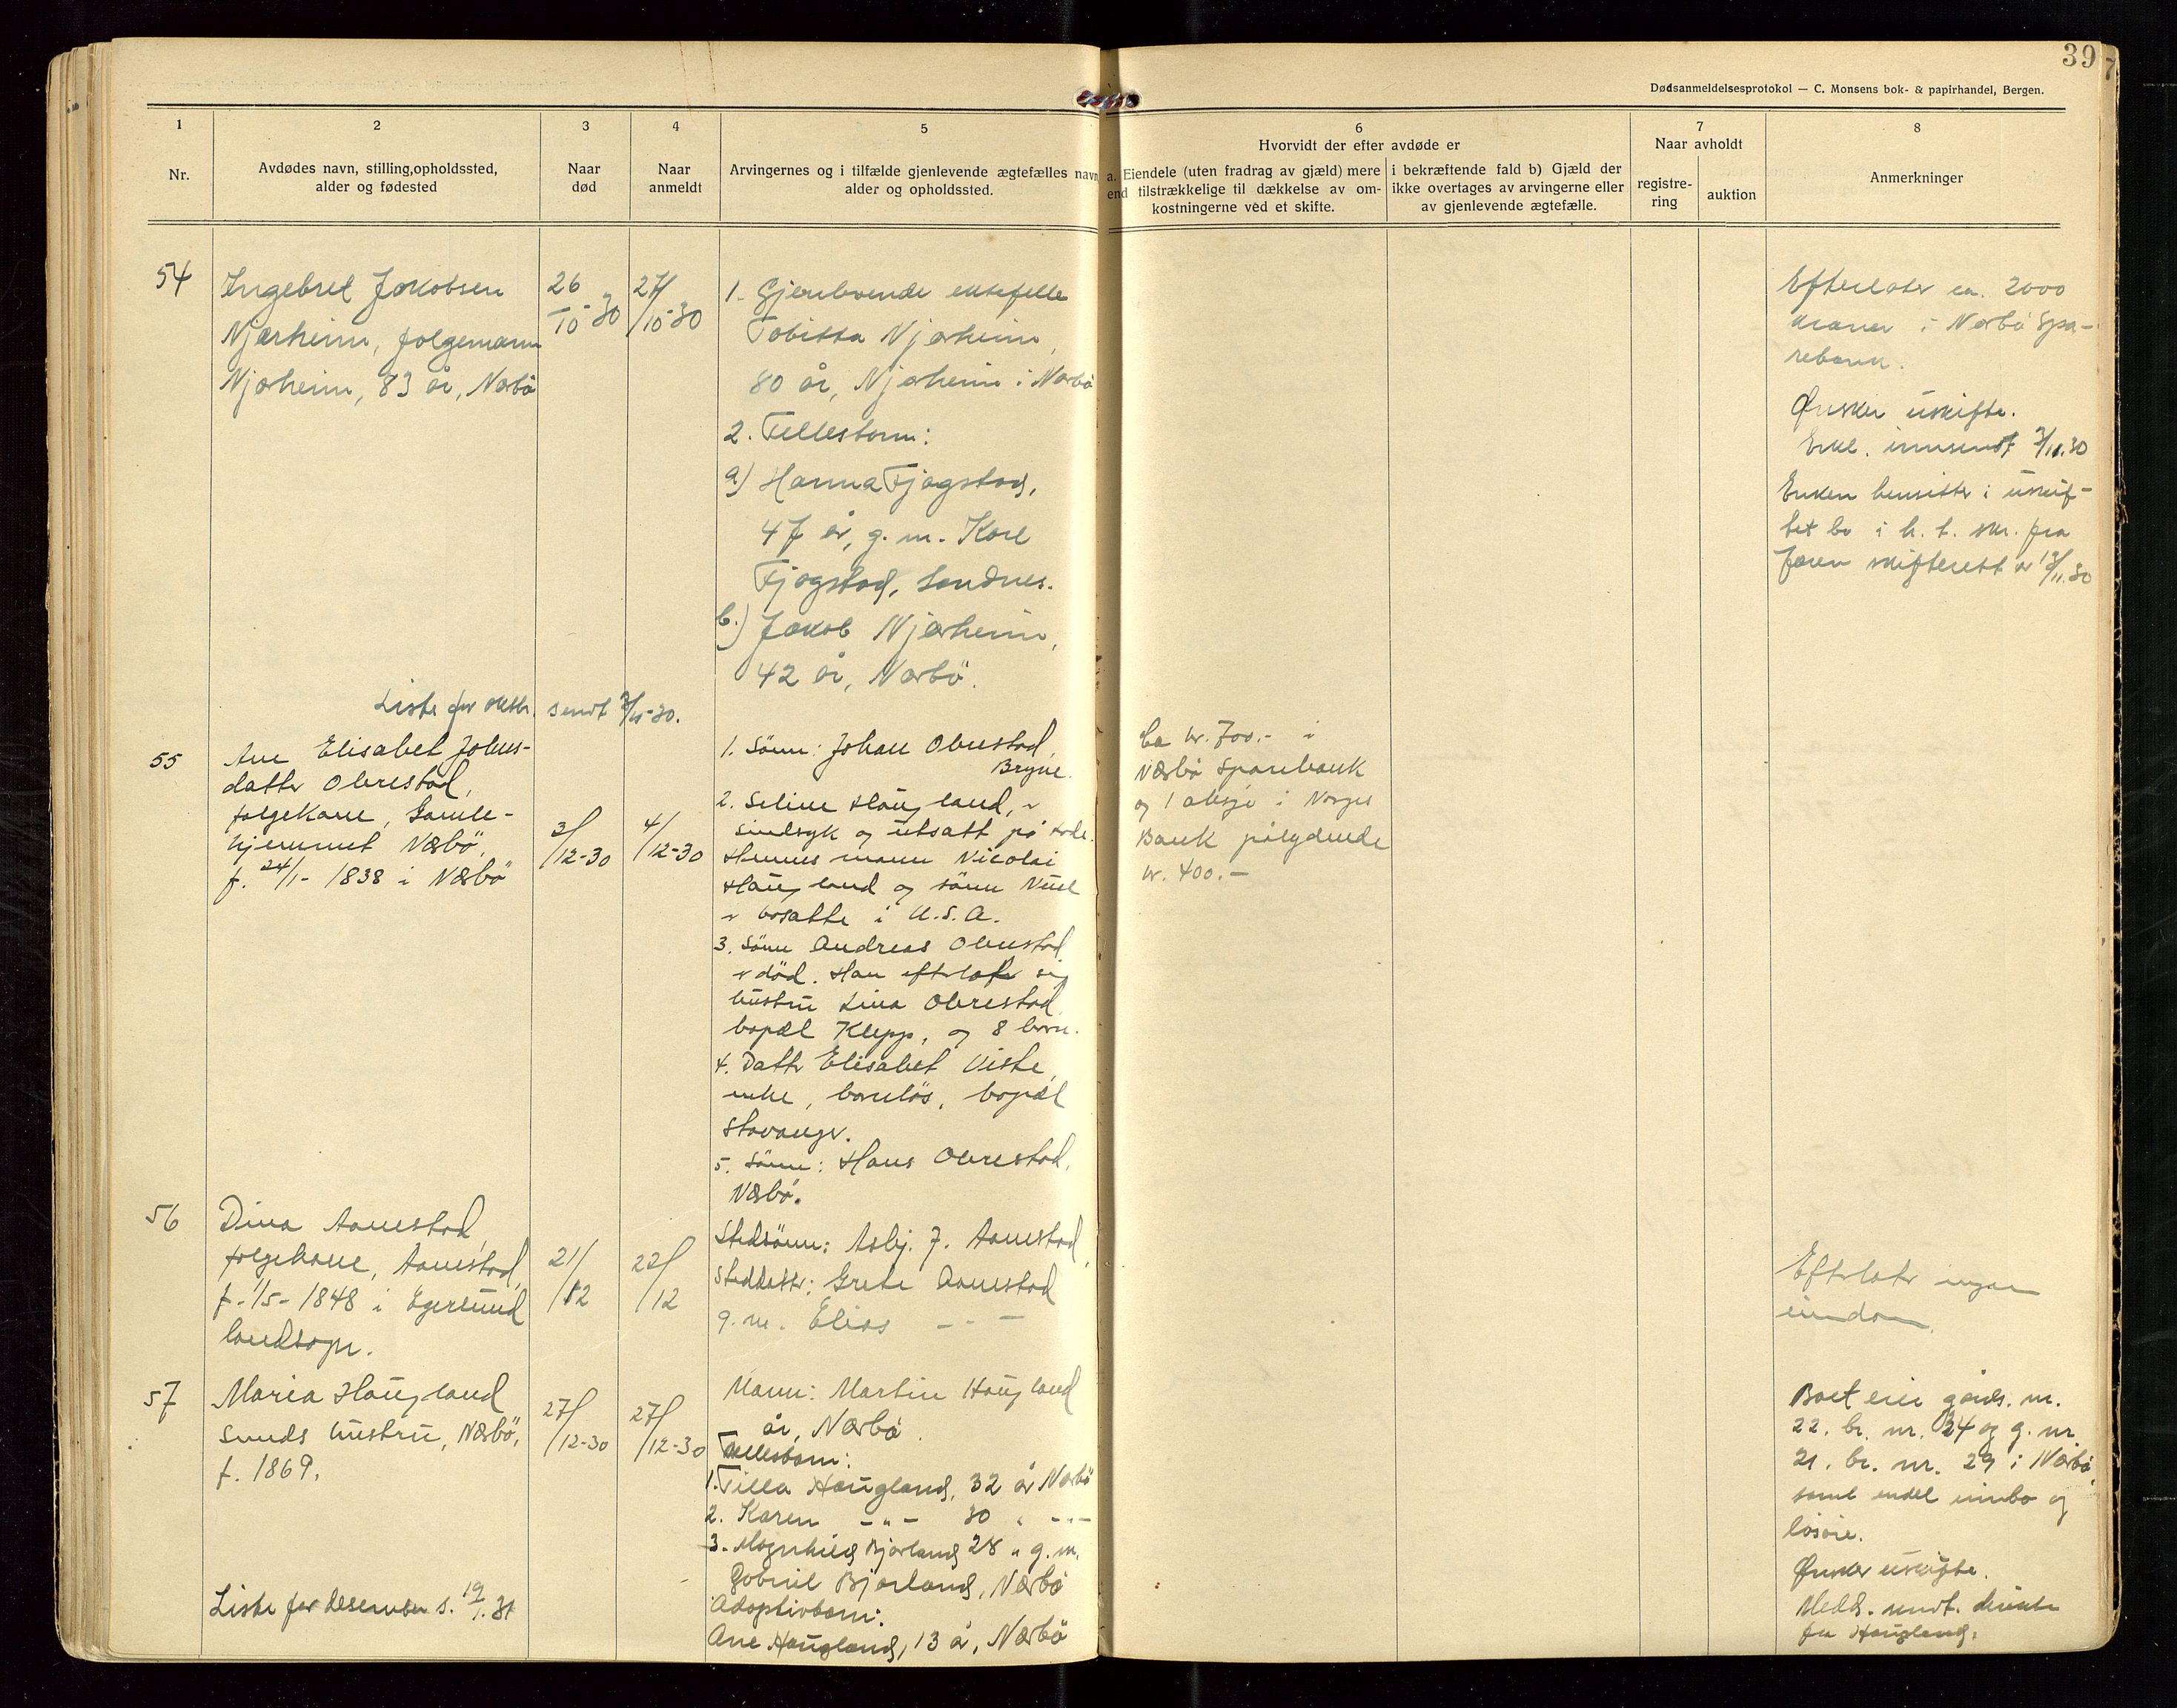 39
7
Dødsanmeldelsesprotokol — C. Monsens bok- & papirhandel, Bergen.
1
Nr.
2
Avdødes navn, stilling,opholdssted,
alder og fødested
3
Naar
død
4
Naar
anmeldt
5
Arvingernes og i tilfælde gjenlevende ægtefælles navn
alder og opholdssted.
6
Hvorvidt der efter avdøde er
a. Eiendele (uten fradrag av gjæld) mere
end tilstrækkelige til dækkelse av om-
kostningerne ved et skifte.
i bekræftende fald b) Gjæld der
ikke overtages av arvingerne eller
av gjenlevende ægtefælle.
7
Naar avholdt
registre-
ring
auktion
8
Anmerkninger
54
Ingebret Jakobsen
Njærheim, folgemann
Njærheim, 83 år, Nærbö
26
/10-30
27/
/10-30
1. Gjenlevende ektefelle
Tobitta Njærheim,
80 år, Njærheim i Nærbö
2. Fellesbarn:
a) Hanna Fjogstad,
47 år, g. m. Karl
Fjogstad, Sandnes.
b.) Jakob Njærheim,
42 år, Nærbö.
Efterlater ca. 2000
kroner i Nærbö Spa-
rebank.
Ønsker uskifte.
Erkl. innsendt 3/11.30
Enken hensitter i uskif-
tet bo i h. t. skr. fra
Jæren skifterett av 13/11.30
Liste for oktbr. sendt 3/11-30.
55
Ane Elisabet Johns-
datter Obrestad,
folgekone, Gamle-
hjemmet Nærbö,
f. 24/1- 1838 i Nærbö
3/
/12-30
4/
/12-30
1. Sönn: Johan Obrestad,
Bryne.
2. Seline Haugland, er
sindsyk og utsatt på
Hennes mann Nicolai
Haugland og sönn
er bosatte i U.S.A.
3. Sönn Andreas Obrestad
er död. Han efterlater sig
hustru Lina Obrestad
bopæl Klepp, og 8 born.
4. Datter Elisabet Viste,
enke, barnlös, bopæl
Stavanger.
5. Sönn: Hans Obrestad,
Nærbö.
Ca kr. 700.- i
Nærbö Sparebank
og 1 aksje i Norges
Bank pålydende
kr. 400.-
56
Dina Aanestad,
folgekone, Aanestad,
f. 1/5- 1848 i Egersund
landsogn.
21/
/12
22/
/12
Stedsönn: Asbj. J. Aanestad,
Steddatter: Grete Aanestad
g. m. Elias - " -
Efterlater ingen
eiendom.
57
Maria Haugland
smeds hustru, Nærbö,
f. 1869.
27/
/12-30
27/
/12-30
Mann: Martin Haugland
år, Nærbö.
Fellesbarn:
1. Tilla Haugland, 32 år Nærbö
2. Karen - " - 30 " - " -
3. Magnhild Bjorland 28 " g. m.
Gabriel Bjorland, Nærbö
Adoptivbarn:
Ane Haugland, 13 å, Nærbö
Boet eier gårds. nr.
22. br. nr. 34 og g. nr.
21. br. nr. 29 i Nærbö,
samt endel innbo og
lösöre.
Ønsker uskifte.
Medd. sendt. direkte
fra Haugland.
Liste for desember s. 19/1.31